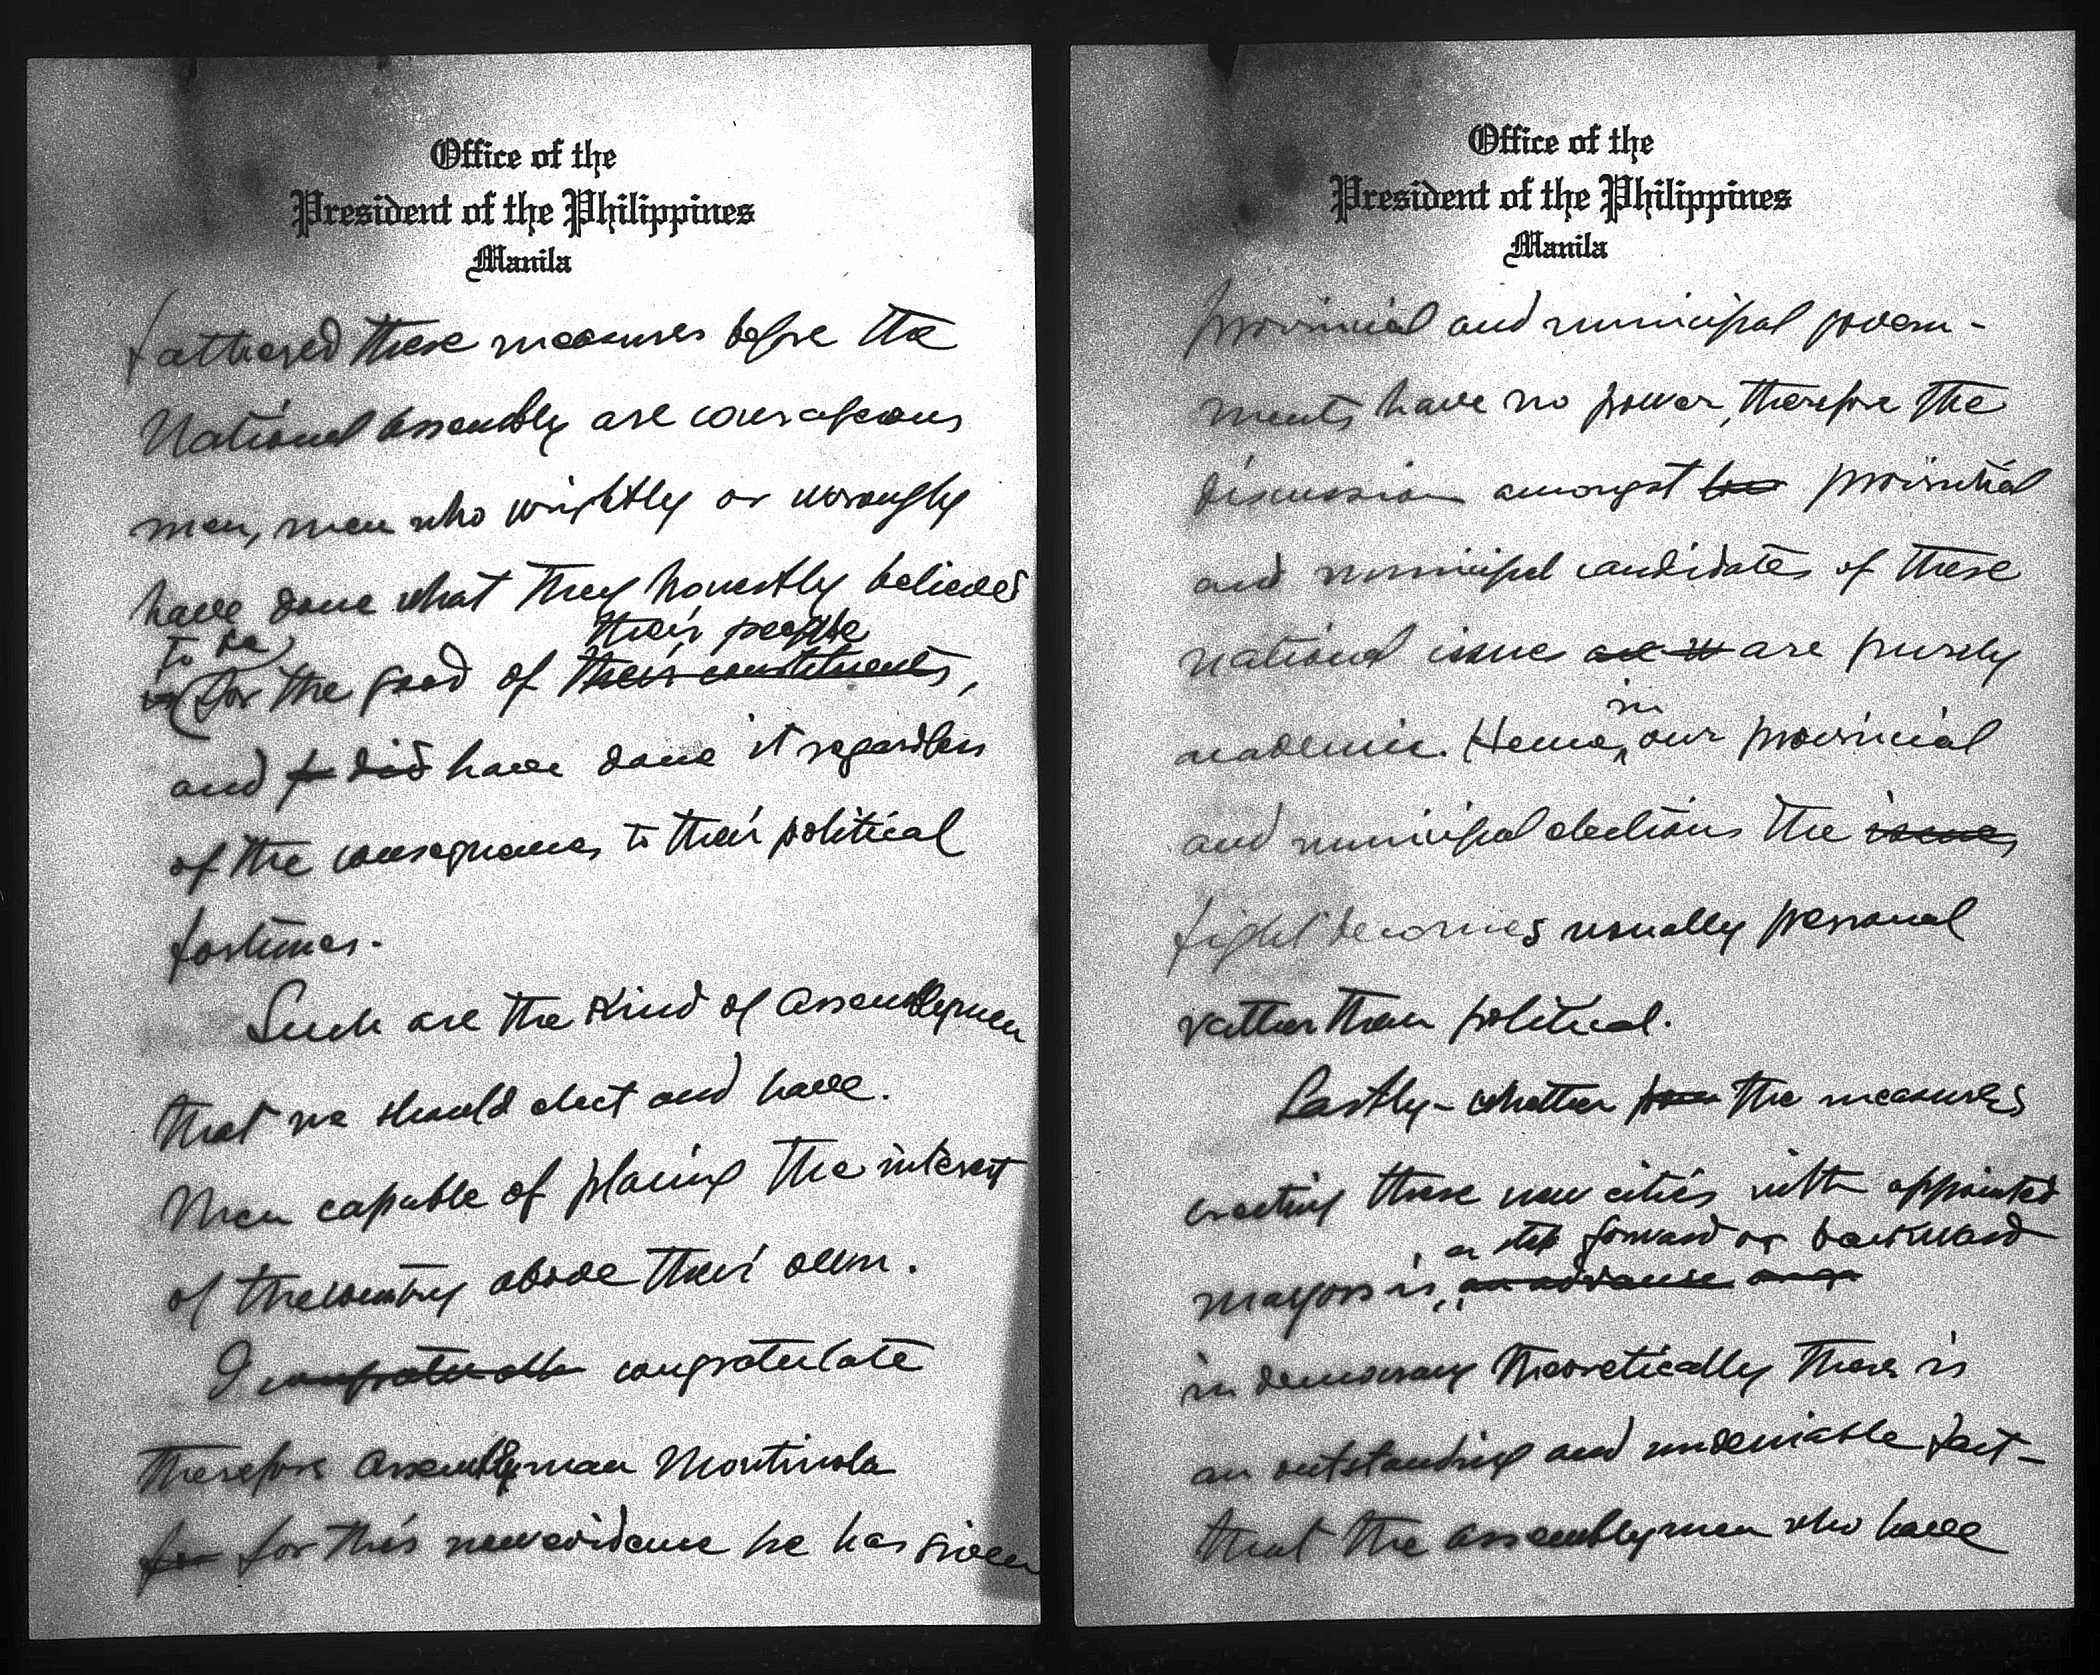 Office of the
President of the Philippines
Manila
fathered these measures before the
National Assembly are courageous
men, men who wrightly or wrongly
have done what they honestly believed
to be their people
for the good of their constituents,
and did have done it regardless
of the consequences to their political
fortunes.
Such are the kind of assemblymen
that we should elect and have.
Men capable of placing the interest
of the country above their own.
I congratulate congratulate
therefore Assemblyman Montinola
for for this new evidence he has given
Office of the
President of the Philippines
Manila
provincial and municipal govern-
ments have no power, therefore the
discussion amongst provincial
and municipal candidates of these
national issues are purely
in
academic. Hence, our provincial
and municipal elections the issues
fight becomes usually personal
rather than political.
Lastly - whether the measures
creating these new cities with appointed
, a step forward or backward
mayors is, an advance
in democracy theoretically there is
an outstanding and undeniable fact -
that the assemblymen who have